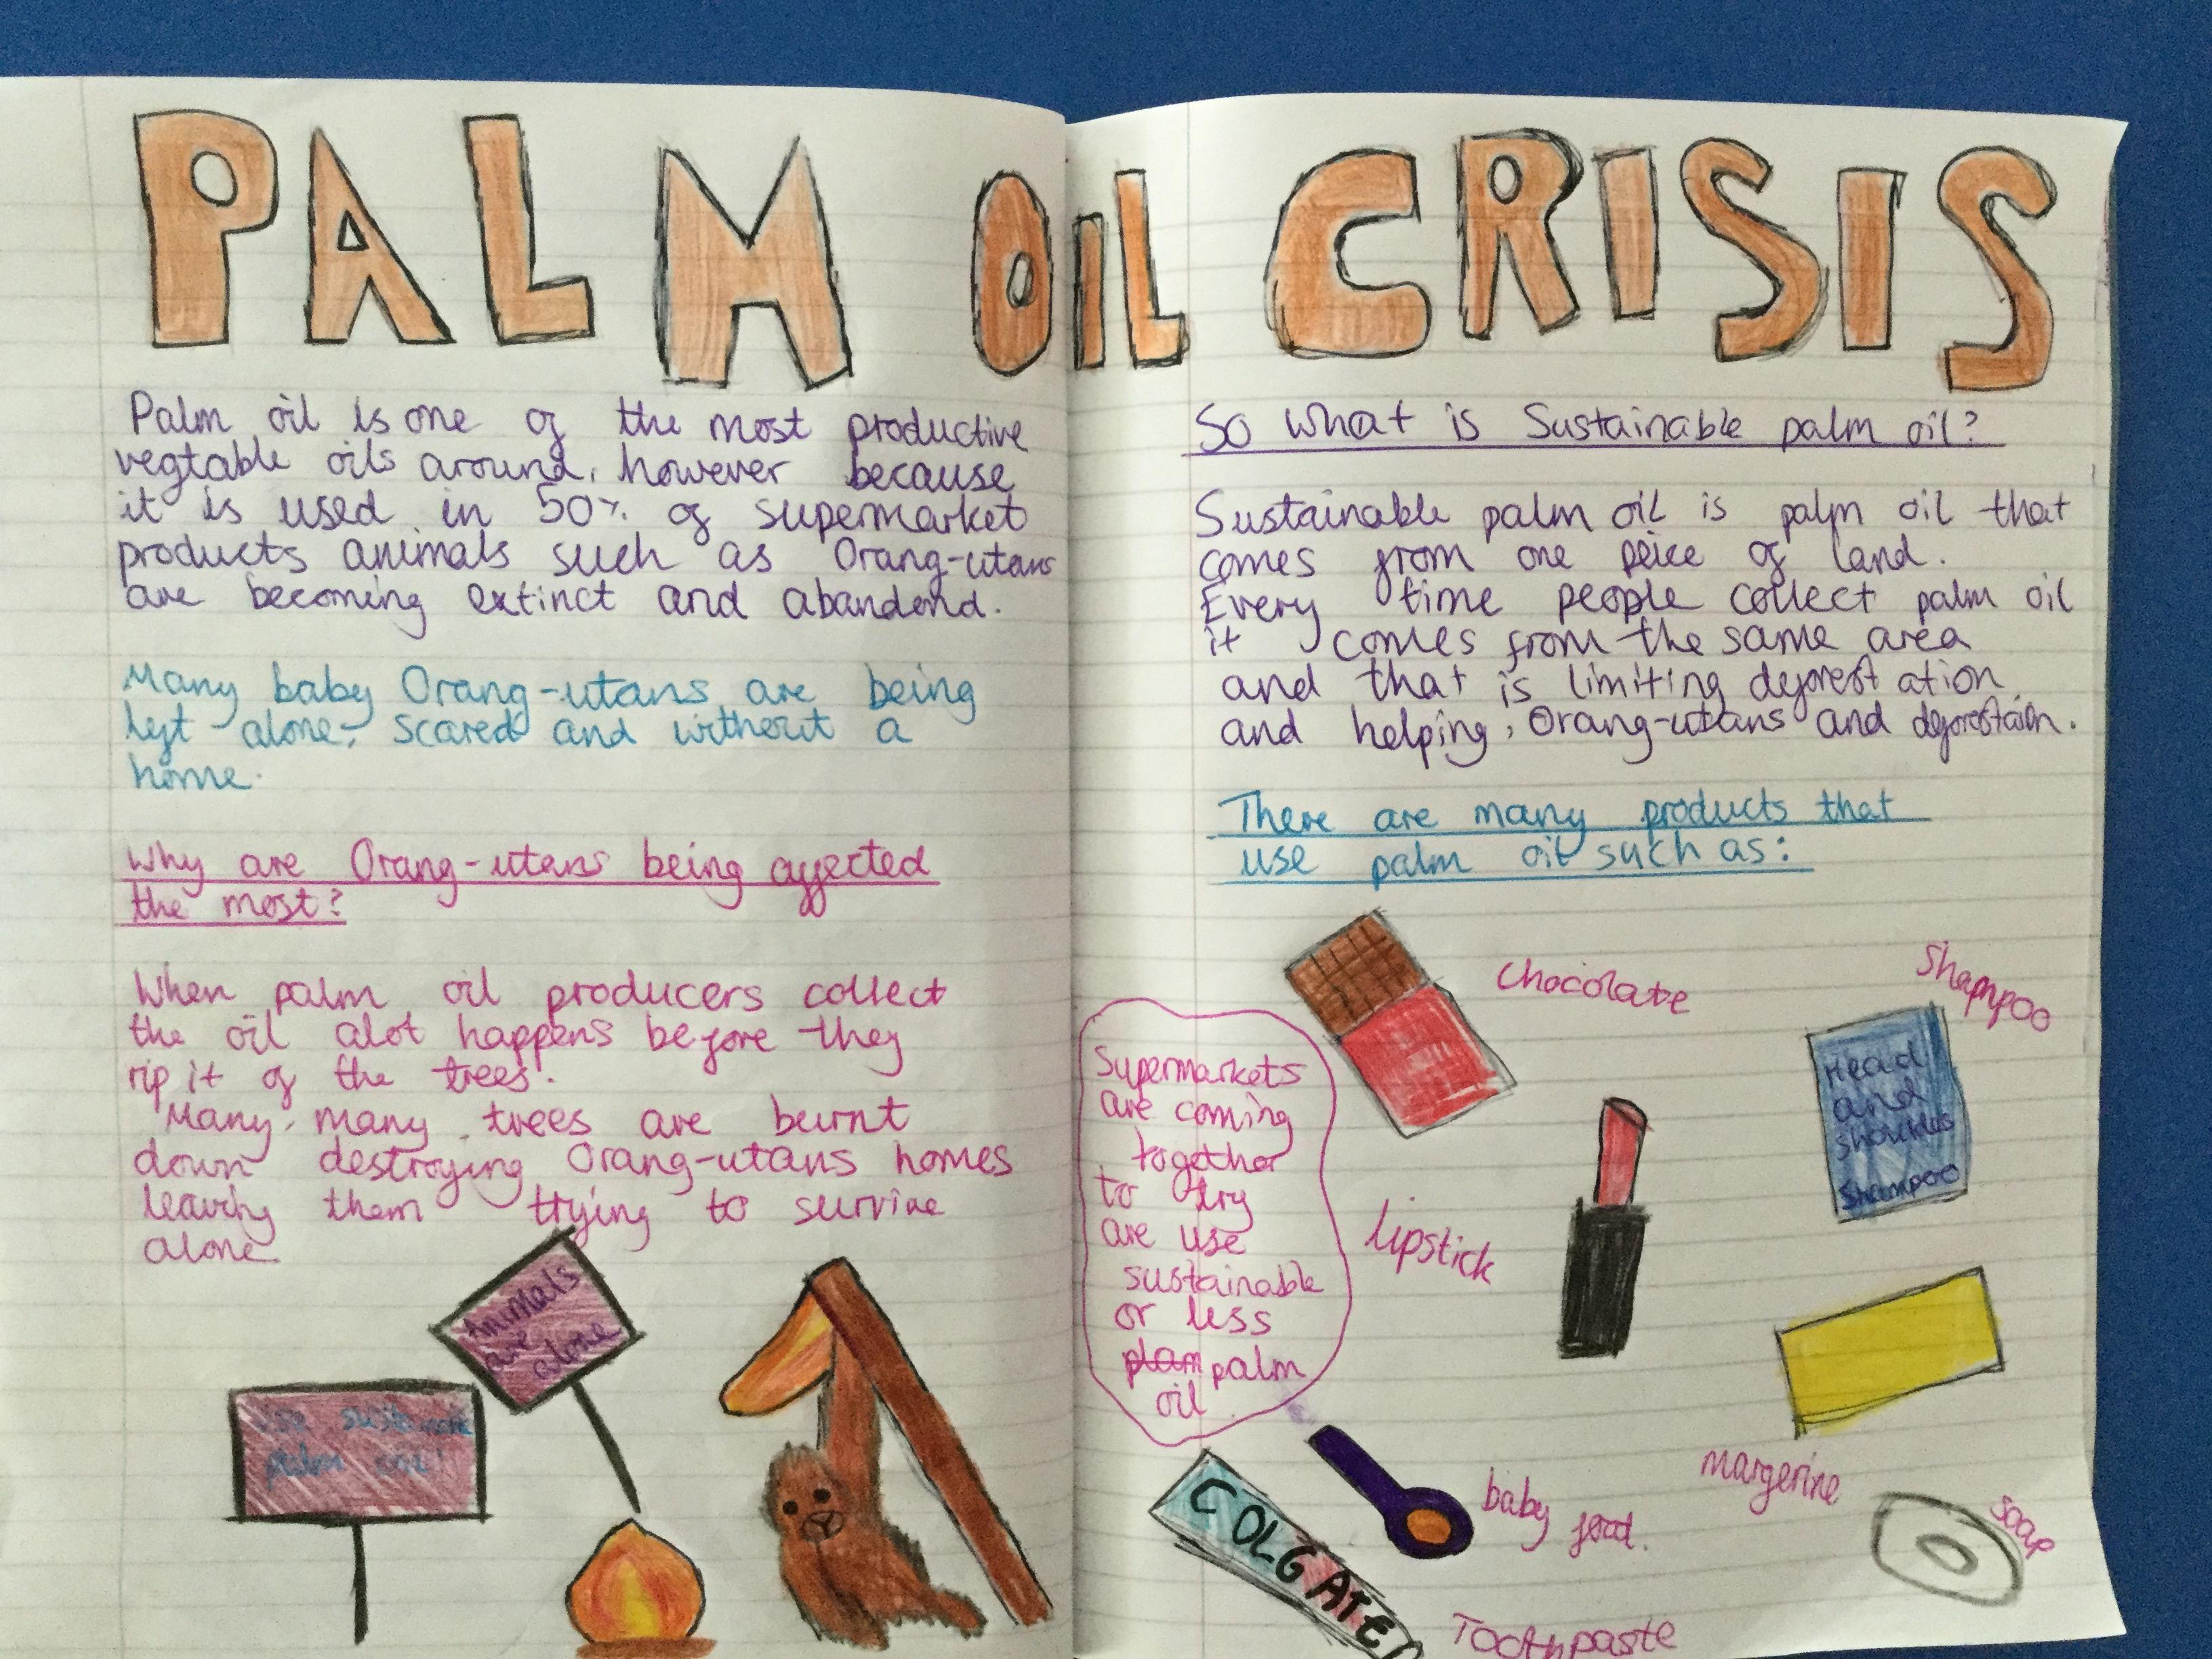 PALM OIL CRISIS
Palm oil is one of the most productive
vegtable oils around, however because
it is used in 50% of supermarket
products animals such as Orang-utans
are becoming extinct and abandend.
Many baby Orang-utans are being
left alone, scared and without a
home.
Why are Orang-utans being affected
the most?
When palm oil producers collect
the oil alot happens before they
rip it of the trees.
Many, many trees are burnt
down destroying Orang-utans homes
leaving them trying to survive
alone.
Animals
are
alone
use sustainable
palm oil!
So what is Sustainable palm oil?
Sustainable palm oil is palm oil that
comes from one peice of land.
Every time people collect palm oil
it comes from the same area
and that is limiting deforestation
and helping, Orang-utans and deforestaion.
There are many products that
use palm oil such as:
Chocolate
Shampoo
Head
and
shoulders
Shampoo
Supermarkets
are coming
together
to try
are use
sustainable
or less
plam palm
oil
Lipstick
margerine
baby food.
soap
COLGATE
Toothpaste